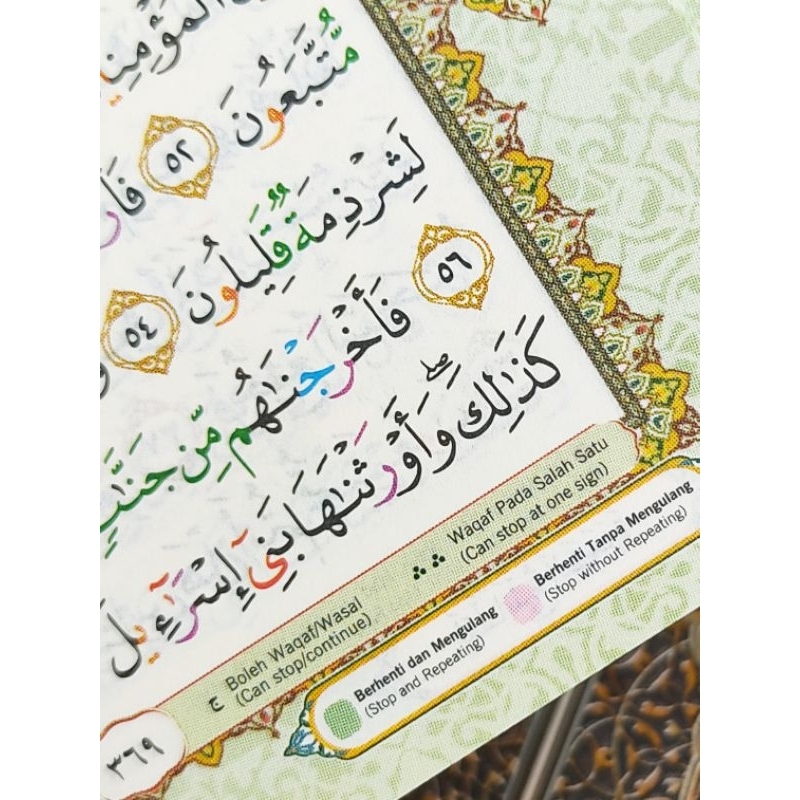 مُّتَّبَعُونَ ٥٢
لَشِرْذِمَةٌ قَلِيلُونَ ٥٤
٥٦
فَأَخْرَجْنَـٰهُم مِّن
كَذَٰلِكَ ۖ وَأَوْرَثْنَـٰهَا بَنِىٓ إِسْرَٰٓءِيلَ
ج Boleh Waqaf/Wasal
(Can stop/continue)
Waqaf Pada Salah Satu
(Can stop at one sign)
Berhenti dan Mengulang
(Stop and Repeating)
Berhenti Tanpa Mengulang
(Stop without Repeating)
٣٦٩